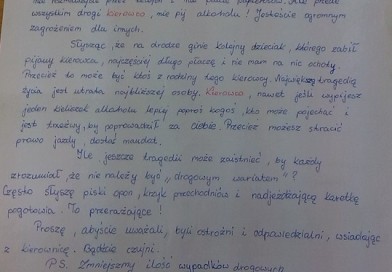 nie rozmawiajcie przez telefon i nie palcie papierosów. Ale przede
wszystkim drogi kierowco, nie pij alkoholu! Jesteście ogromnym
zagrożeniem dla innych.
Słysząc, że na drodze ginie kolejny dzieciak, którego zabił
pijany kierowca, najczęściej długo płaczę i nie mam na nic ochoty.
Przecież to może być ktoś z rodziny tego kierowcy. Największą tragedią
życia jest utrata najbliższej osoby. Kierowco, nawet jeśli wypijesz
jeden kieliszek alkoholu lepiej poproś kogoś, kto może pojechać i
jest trzeźwy, by poprowadził za Ciebie. Przecież możesz stracić
prawo jazdy, dostać mandat.
Ile jeszcze tragedii może zaistnieć, by każdy
zrozumiał, że nie należy być „drogowym wariatem"?
Często słyszę piski opon, krzyk przechodniów i nadjeżdżającą karetkę
pogotowia. To przerażające!
Proszę, abyście uważali, byli ostrożni i odpowiedzialni, wsiadając
z kierownicę. Bądźcie czujni.
P.S. Zmniejszmy ilość wypadków drogowych